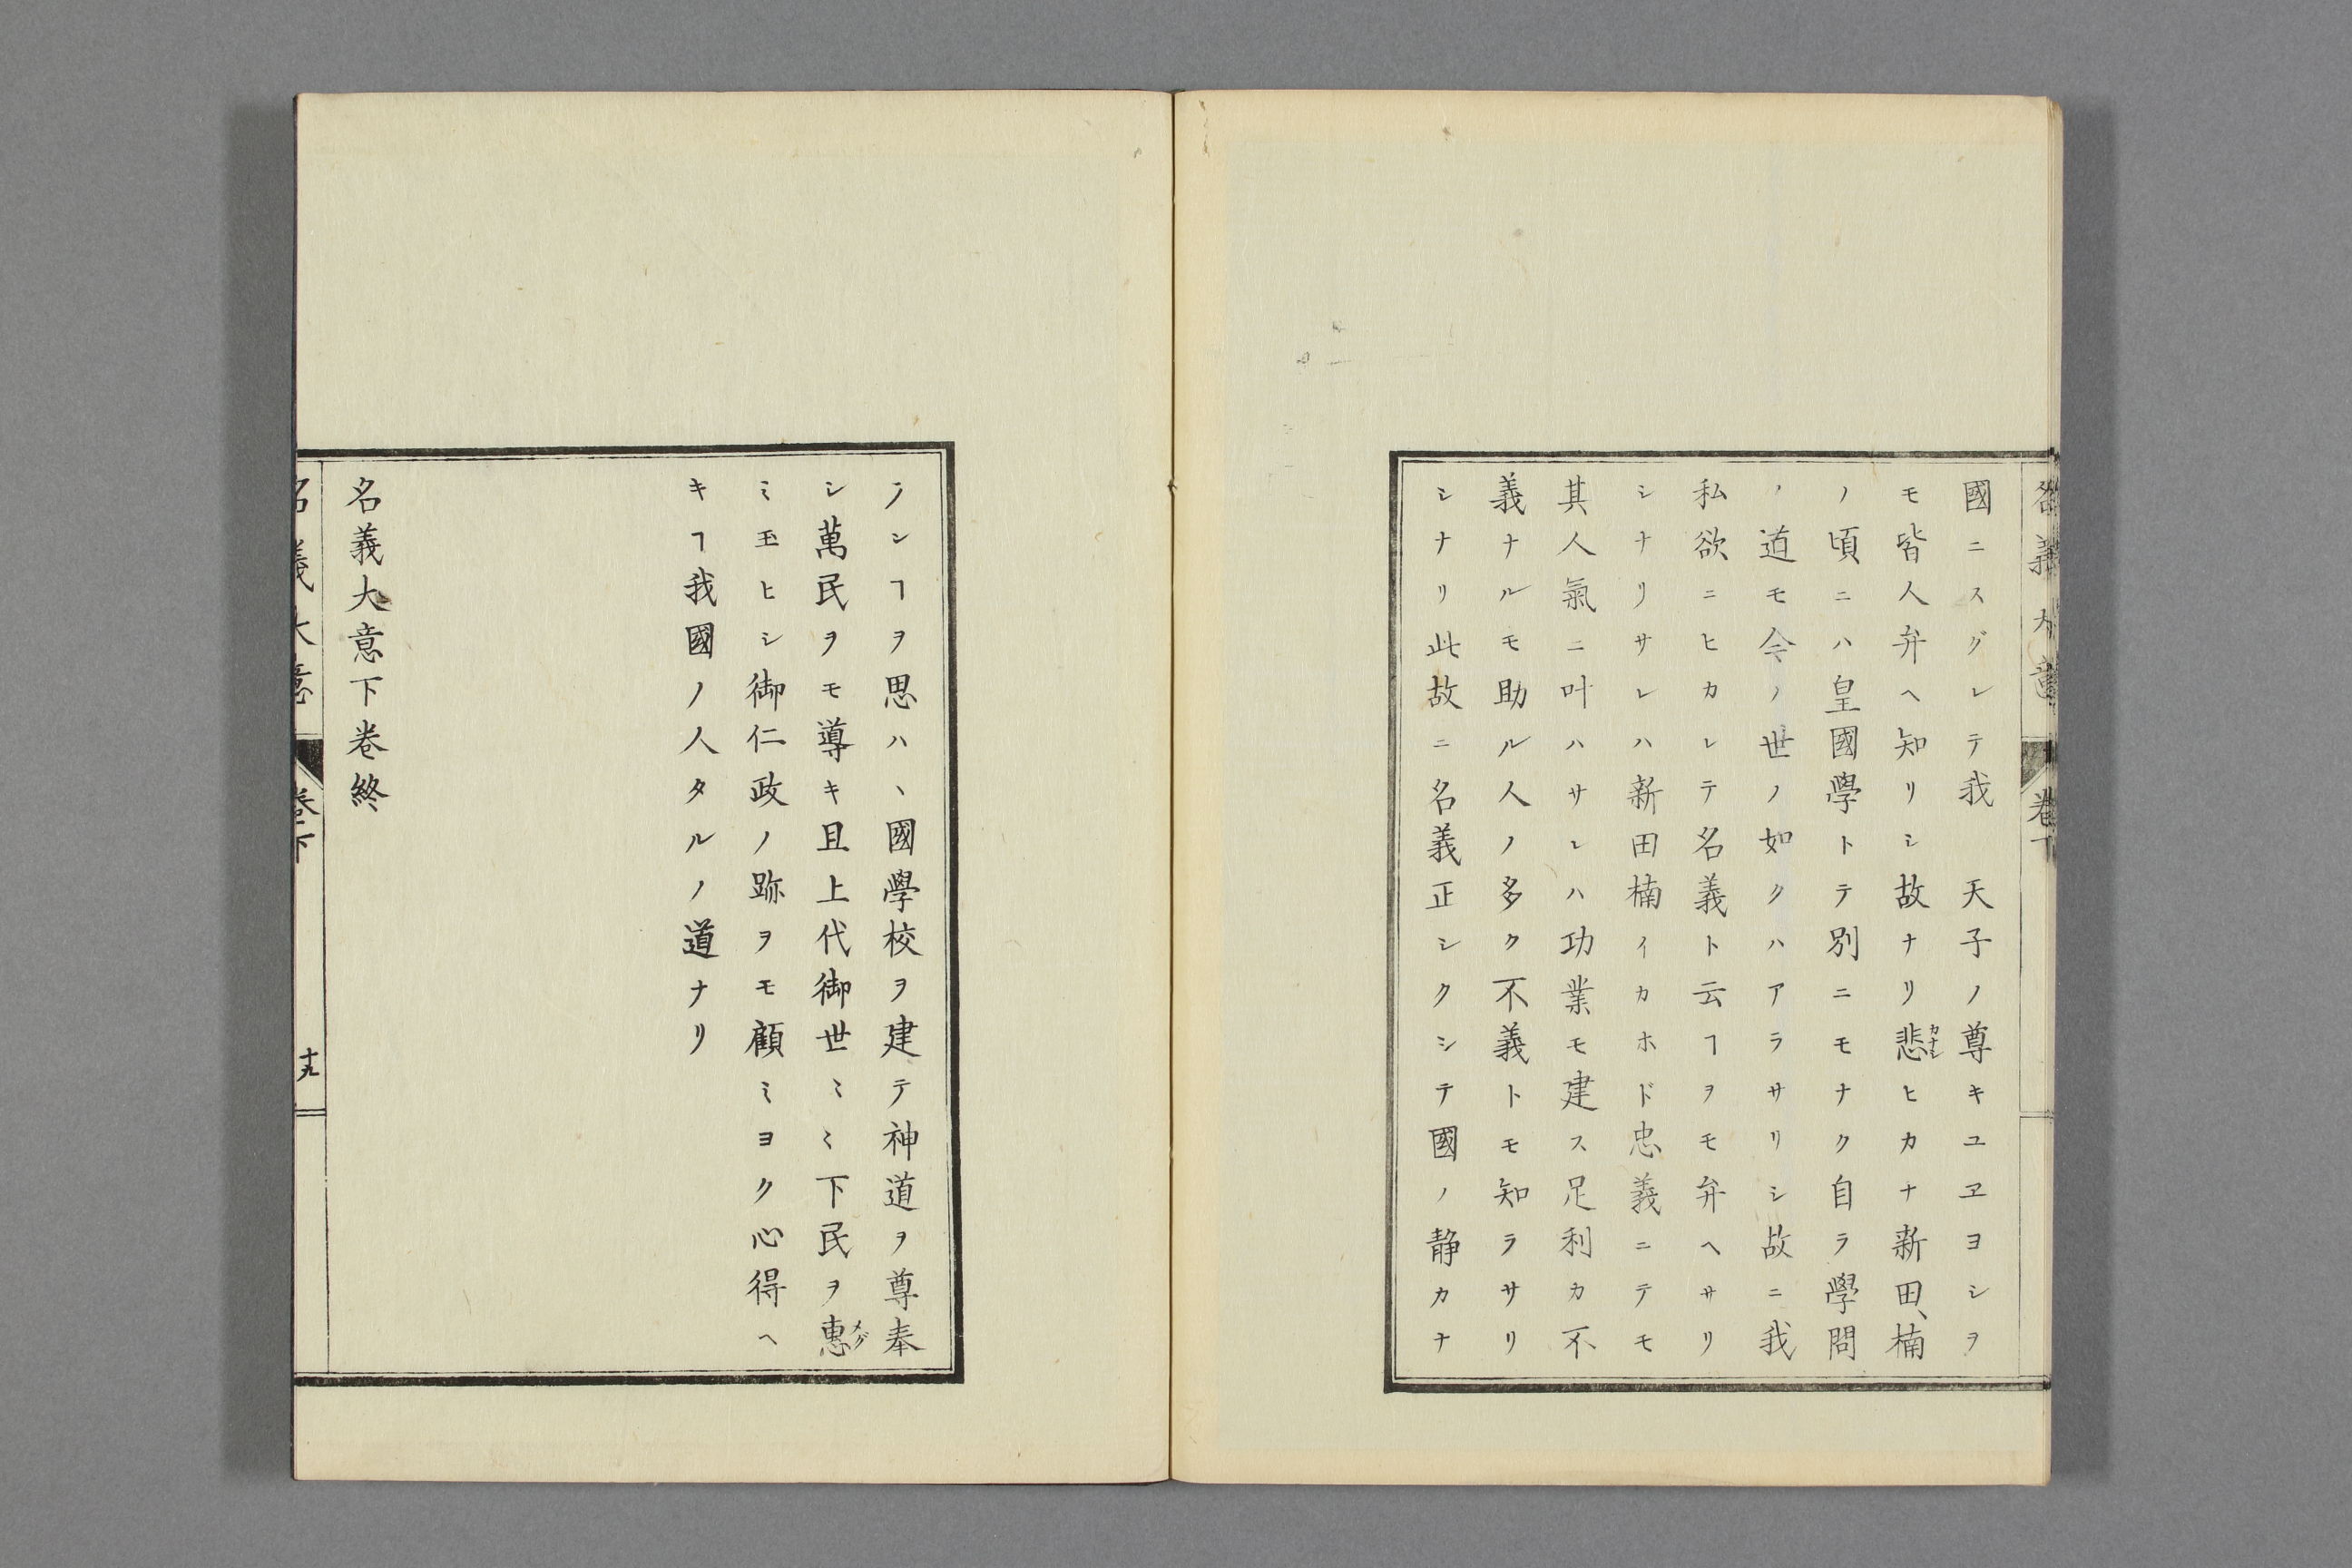 名義大意 卷下
國ニスグレテ我　天子ノ尊キユヱヨシヲ
モ皆人弁ヘ知リシ故ナリ悲カナシヒカナ新田、楠
ノ頃ニハ皇國學トテ別ニモナク自ラ學問
ノ道モ今ノ世ノ如クハアラサリシ故ニ我
私欲ニヒカレテ名義ト云ヿヲモ弁ヘサリ
シナリサレハ新田楠イカホド忠義ニテモ
其人氣ニ叶ハサレハ功業モ建ス足利カ不
義ナルモ助ル人ノ多ク不義トモ知ラサリ
シナリ此故ニ名義正シクシテ國ノ静カナ
ランヿヲ思ハヽ國學校ヲ建テ神道ヲ尊奉
シ萬民ヲモ導キ且上代御世〻〻下民ヲ惠メグ
ミ玉ヒシ御仁政ノ跡ヲモ顧ミヨク心得ヘ
キヿ我國ノ人タルノ道ナリ
名義大意下巻終
名義大意 卷下 十九